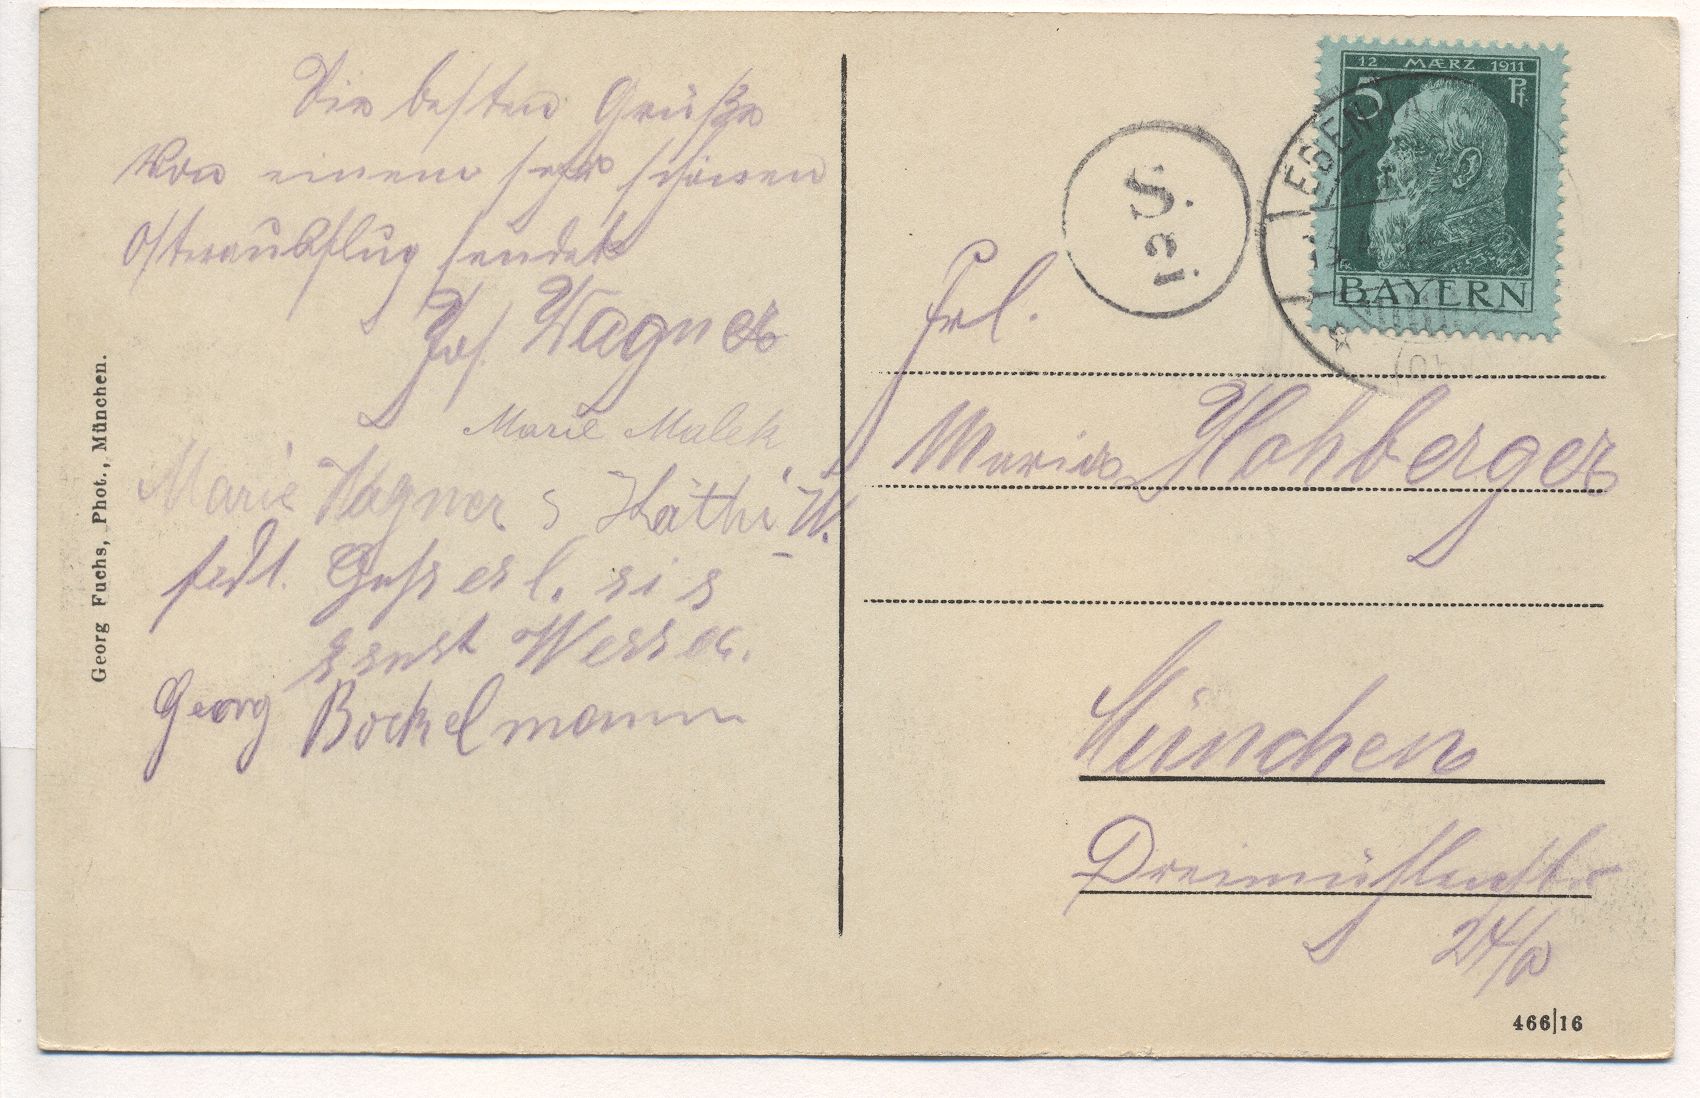 Die besten Grüße
von einem sehr schönen
Osterausflug sendet
Jos. Wagner
Marie Malek
Marie Wagner Käthi W.
Ernst Wesser.
Georg Bockelmann
Georg Fuchs, Phot., München.
12 MÆRZ 1911
5 Pf
BAYERN
S.
Frl.
Maria Hohberger
München
Dreimühlenstr
24/0
466|16